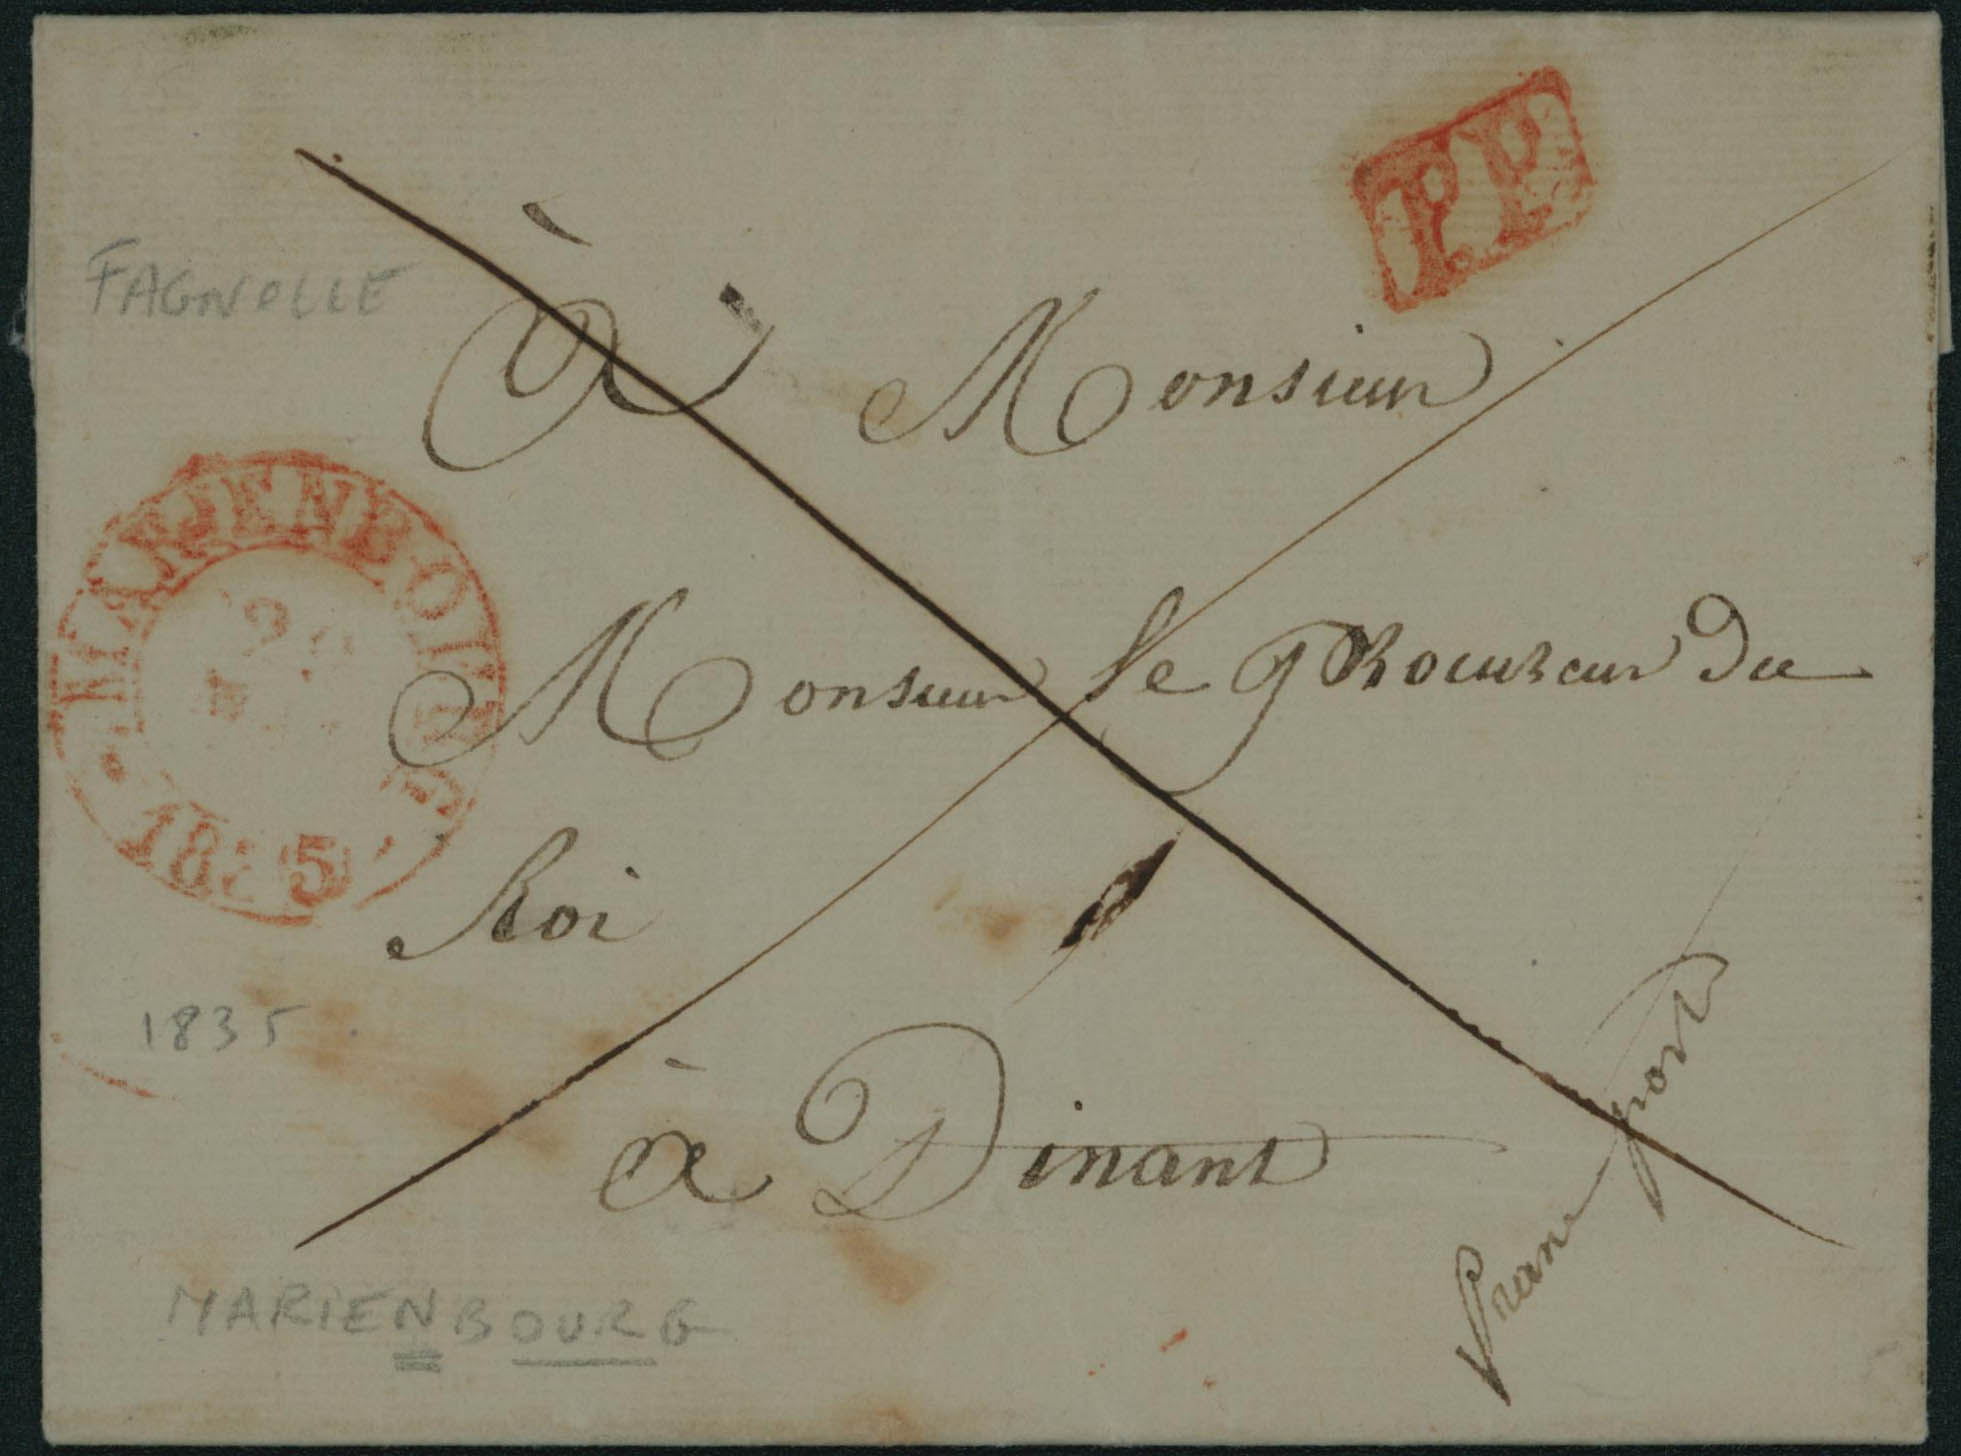 P.P.
FAGNOLLE
à Monsieur
MARIENBOURG
1835
Monsieur le procureur du
Roi
1835
à Dinant
franc port
MARIENBOURG